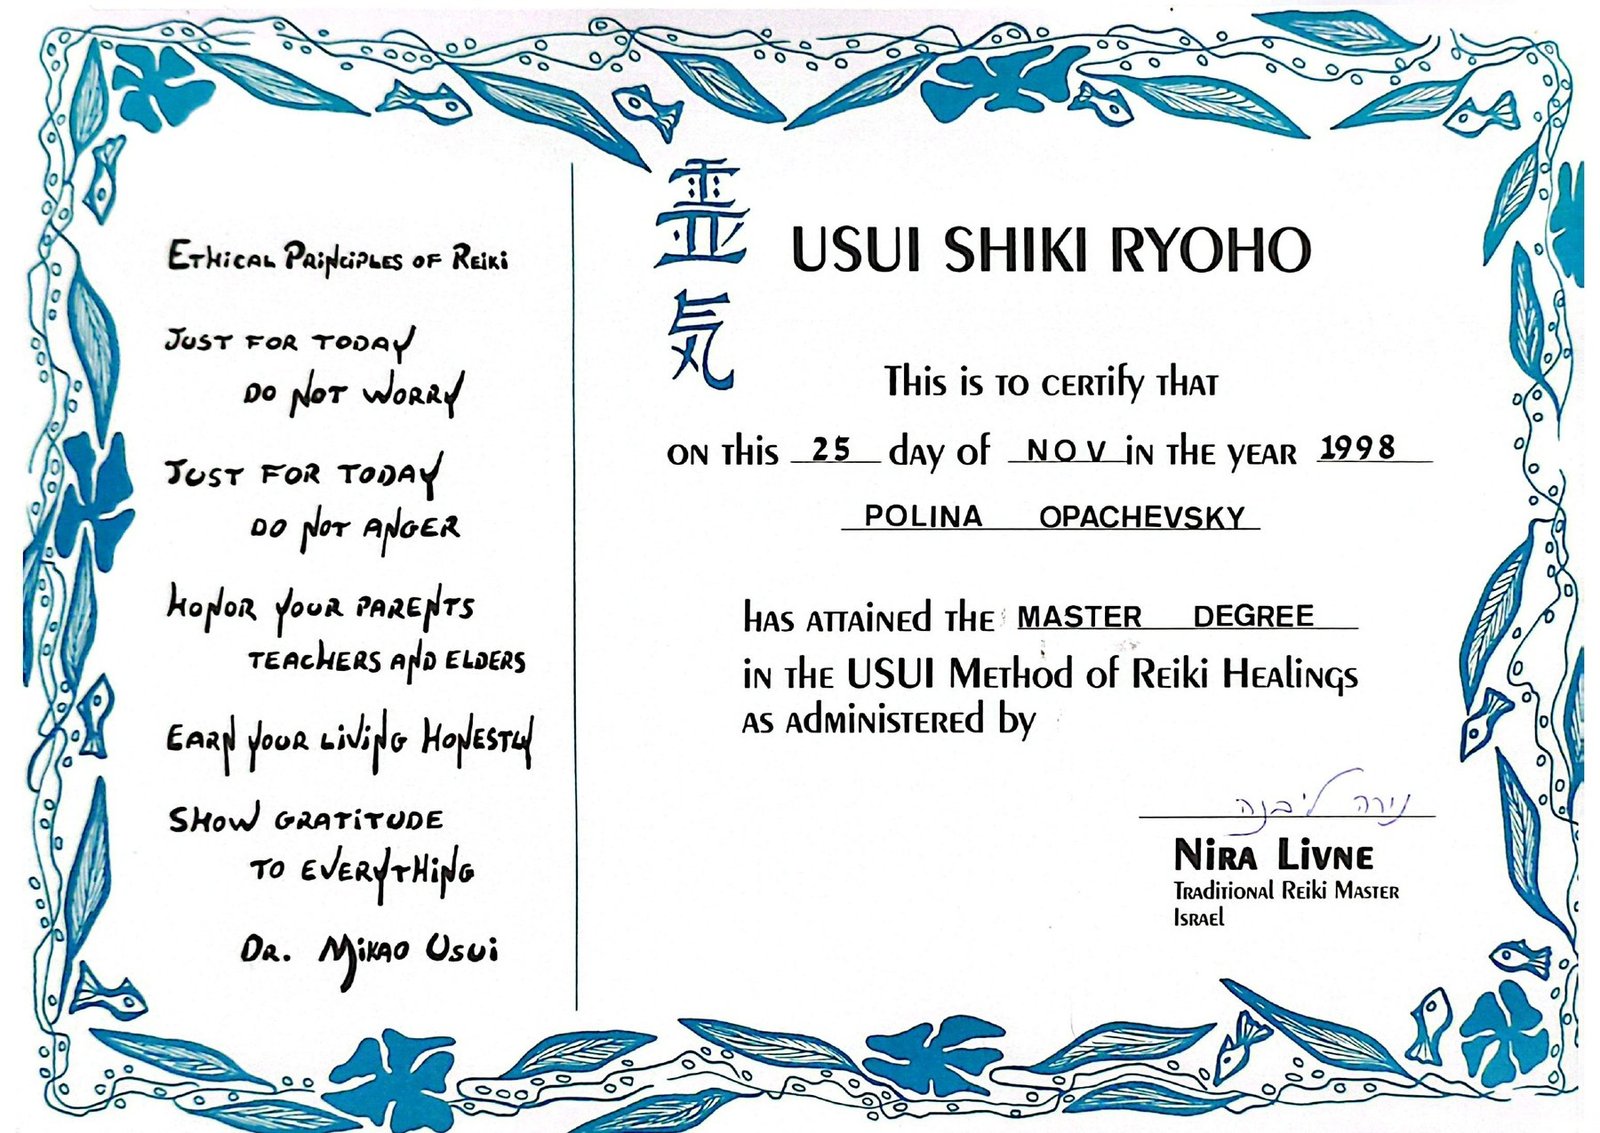 Ethical Principles of Reiki
Just for today
do not worry
Just for today
do not anger
Honor your parents
teachers and elders
Earn your living honestly
Show gratitude
to everything
Dr. Mikao Usui
霊
気
USUI SHIKI RYOHO
This is to certify that
on this 25 day of NOV in the year 1998
POLINA OPACHEVSKY
has attained the MASTER DEGREE
in the USUI Method of Reiki Healings
as administered by
נירה ליבנה
Nira Livne
Traditional Reiki Master
Israel